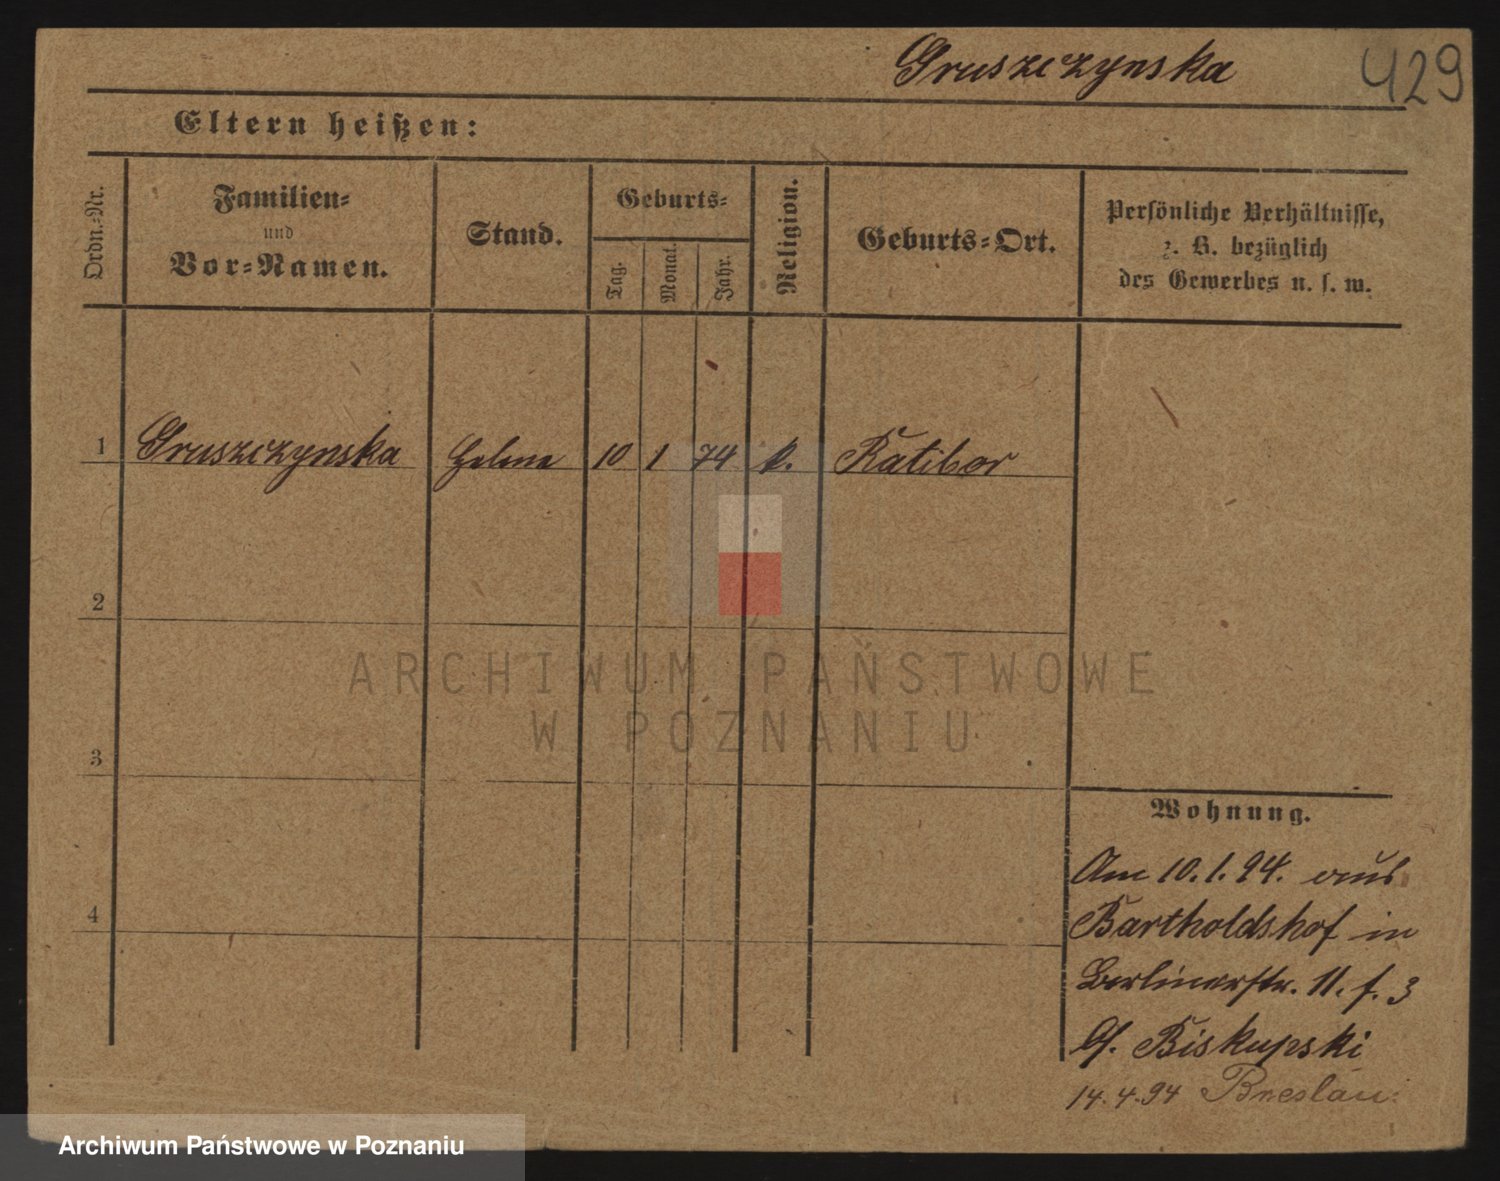 Gruszczynska 429
Eltern heißen:
Ordn.=Nr.
Familien=
und
Vor=Namen.
Stand.
Geburts=
Tag.
Monat.
Jahr.
Religion.
Geburts=Ort.
Persönliche Verhältnisse,
z. B. bezüglich
des Gewerbes u. s. w.
1 Gruszczynska Helene 10 1 74 k. Ratibor
2
ARCHIWUM PAŃSTWOWE
W POZNANIU
3
Wohnung.
Am 10.1.94. aus
4
Bartholdshof in
Berlinerstr. 11. f. 3
b/. Biskupski
14.4.94 Breslau.
Archiwum Państwowe w Poznaniu